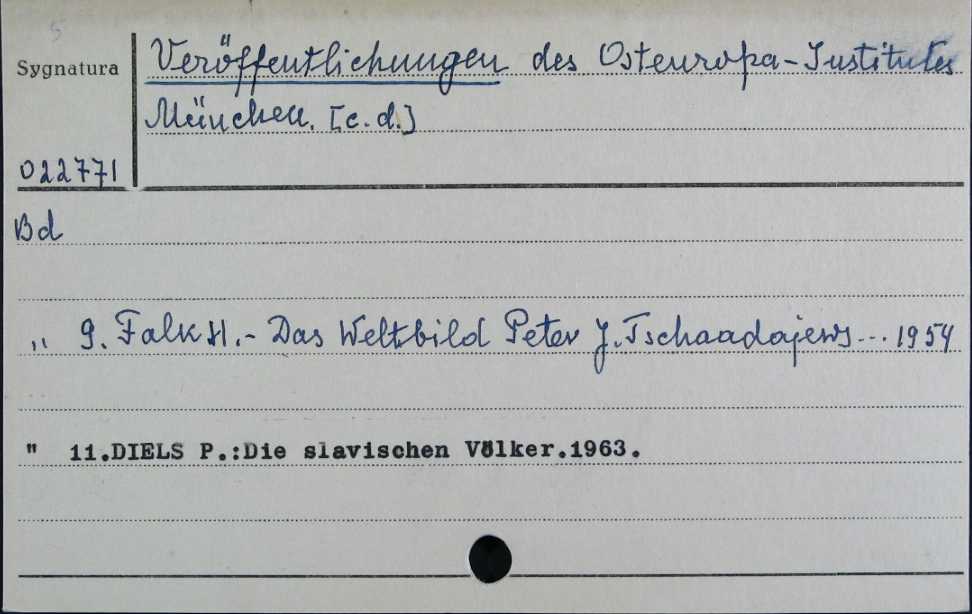 5
Sygnatura
Veröffentlichungen des Osteuropa-Institutes
München. [c.d.]
022771
Bd
„ 9. Falk H.- Das Weltbild Peter J. Tschaadajews... 1954
" 11.DIELS P.:Die slavischen Völker.1963.